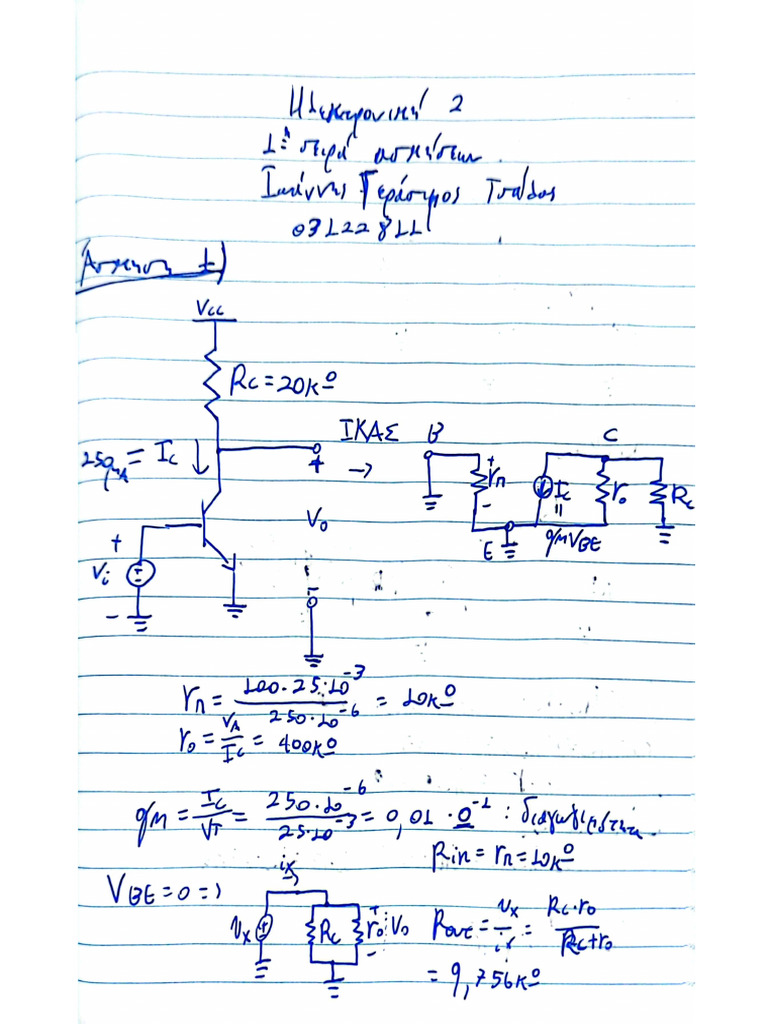 Ηλεκτρονική 2
1η σειρά ασκήσεων.
Ιωάννης Γεράσιμος Τσάδος
03122811
Άσκηση 1)
Vcc
Rc = 20kΩ
250μA = Ic
+
Vo
+
Vi
-
-
ΙΚΑΣ
→
B
+
rπ
-
E
C
Ic
=
gmVBE
ro
Rc
rπ = 100·25·10^-3 / 250·10^-6 = 10kΩ
ro = VA / Ic = 400kΩ
gm = Ic / VT = 250·10^-6 / 25·10^-3 = 0,01·Ω^-1 : διαγωγιμότητα.
Rin = rπ = 10kΩ
VBE = 0 =>
ix
vx
Rc
ro
+
Vo
-
Rout = vx / ix = Rc·ro / Rc+ro
= 9,756kΩ